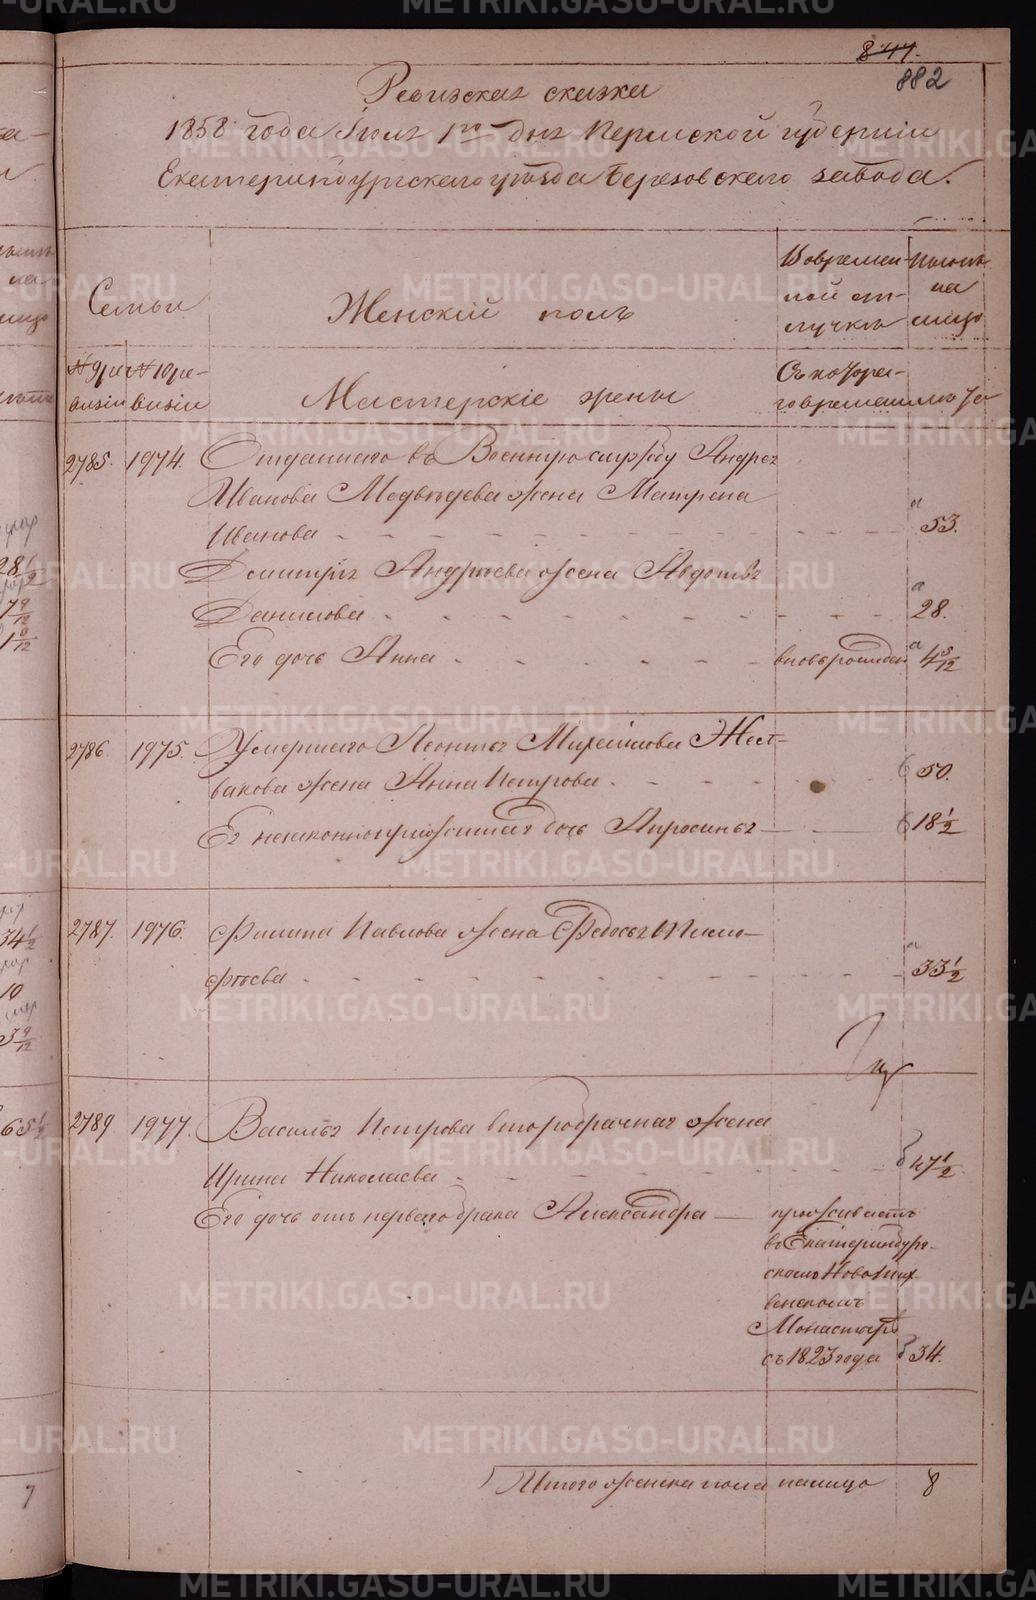 847.
882
Ревизская сказка
1858 года Iюля 1го дня Пермской губернiи
Екатеринбургского уѣзда Березовского завода.
Семьи
Женскiй полъ
Во времен-
ной от-
лучкѣ
Налицо
№ 9 ре-
визiи
№ 10 ре-
визiи
Мастерскiе жены
Съ котора-
го времяни
лѣта
2785. 1974. Отданнаго въ Военную службу Андрея
Иванова Медвѣдева жена Матрена
Иванова 53.
Дмитрiя Андрѣева жена Авдотья
Данилова 28.
Его дочь Анна вновьрожден 4 5/12
2786. 1975. Умершего Леонтья Жел-
вакова жена Анна Петрова 50.
Ея незаконноприжитая дочь Апросинья 18 1/2
2787. 1976. Филипа Павлова жена Федосья Ники-
форова 33 1/2
2789. 1977. Василья Петрова второбрачная жена
Ирина Николаева 47 1/2
Его дочь отъ первого брака Александра
проживаетъ
въ Екатеринбург-
скомъ Новотих-
винскомъ
Монастырѣ
съ 1823 года 34.
Итого женска пола налицо 8
METRIKI.GASO-URAL.RU